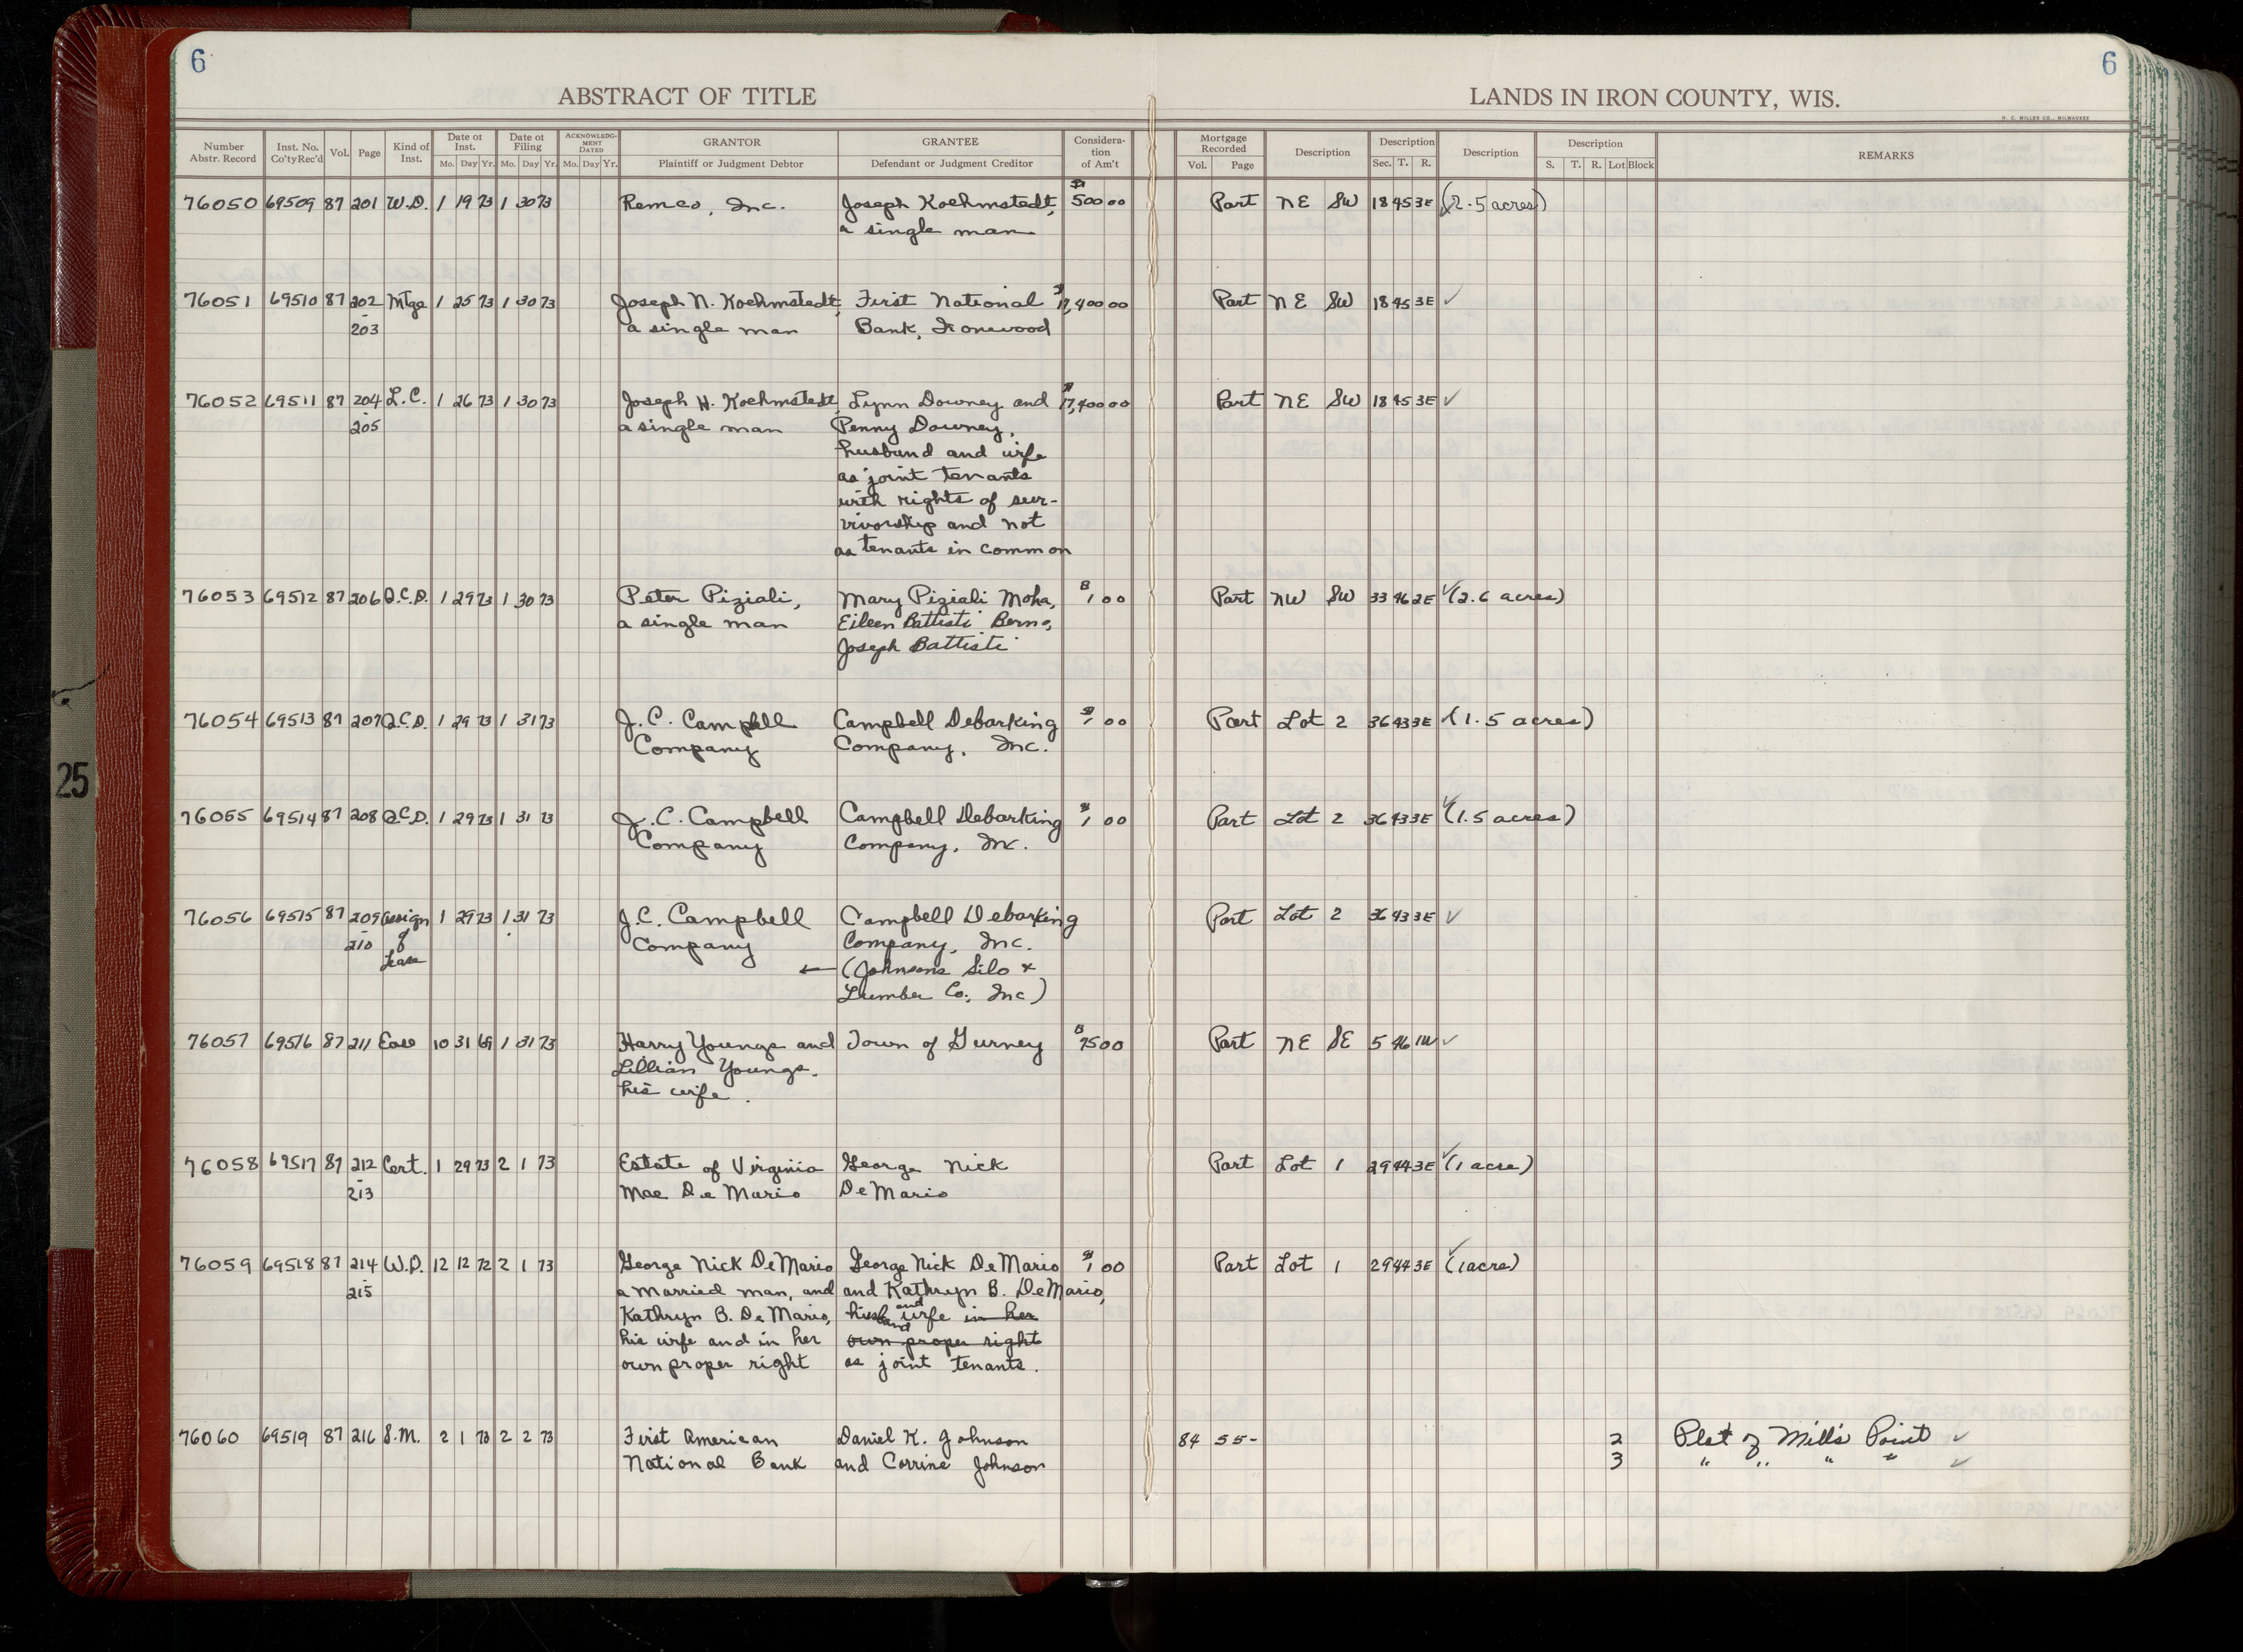 6
6
ABSTRACT OF TITLE
LANDS IN IRON COUNTY, WIS.
H. C. MILLER CO., MILWAUKEE
Number Abstr. Record | Inst. No. Co'ty Rec'd | Vol. | Page | Kind of Inst. | Date of Inst. Mo. Day Yr. | Date of Filing Mo. Day Yr. | ACKNOWLEDGMENT DATED Mo. Day Yr. | GRANTOR Plaintiff or Judgment Debtor | GRANTEE Defendant or Judgment Creditor | Consideration of Am't | Mortgage Recorded Vol. Page | Description | Description Sec. T. R. | Description | Description S. T. R. Lot Block | REMARKS
76050 69509 87 201 W.D. 1 19 73 1 30 73 Remco, Inc. Joseph Koehmstedt, $500 00 Part NE SW 18 45 3E (2.5 acres)
a single man
76051 69510 87 202 Mtge 1 25 73 1 30 73 Joseph N. Koehmstedt, First National $17,400 00 Part NE SW 18 45 3E ✓
- 203 a single man Bank, Ironwood
76052 69511 87 204 L.C. 1 26 73 1 30 73 Joseph H. Koehmstedt, Lynn Downey and $17,400 00 Part NE SW 18 45 3E ✓
- 205 a single man Penny Downey,
husband and wife
as joint tenants
with rights of sur-
vivorship and not
as tenants in common
76053 69512 87 206 Q.C.D. 1 29 73 1 30 73 Peter Piziali, Mary Piziali Moha, $1 00 Part NW SW 33 46 2E ✓ (2.6 acres)
a single man Eileen Battisti Berno,
Joseph Battisti
76054 69513 87 207 Q.C.D. 1 29 73 1 31 73 J. C. Campbell Campbell Debarking $1 00 Part Lot 2 36 43 3E ✓ (1.5 acres)
Company Company, Inc.
76055 69514 87 208 Q.C.D. 1 29 73 1 31 73 J. C. Campbell Campbell Debarking $1 00 Part Lot 2 36 43 3E ✓ (1.5 acres)
Company Company, Inc.
76056 69515 87 209 Assign 1 29 73 1 31 73 J.C. Campbell Campbell Debarking Part Lot 2 36 43 3E ✓
- 210 of Company Company, Inc.
Lease ← (Johnsons Silo &
Lumber Co., Inc)
76057 69516 87 211 Ease 10 31 69 1 31 73 Harry Youngs and Town of Gurney $75 00 Part NE SE 5 46 1W ✓
Lillian Youngs,
his wife.
76058 69517 87 212 Cert. 1 29 73 2 1 73 Estate of Virginia George Nick Part Lot 1 29 44 3E ✓ (1 acre)
- 213 Mae De Mario De Mario
76059 69518 87 214 W.D. 12 12 72 2 1 73 George Nick De Mario George Nick De Mario $1 00 Part Lot 1 29 44 3E ✓ (1 acre)
- 215 a married man, and and Kathryn B. De Mario,
Kathryn B. De Mario, husband and wife in her
his wife and in her own proper right
own proper right as joint tenants.
76060 69519 87 216 S.M. 2 1 73 2 2 73 First American Daniel K. Johnson 84 55- 2 Plat of Mill's Point ✓
National Bank and Corrine Johnson 3 " " " " ✓
25